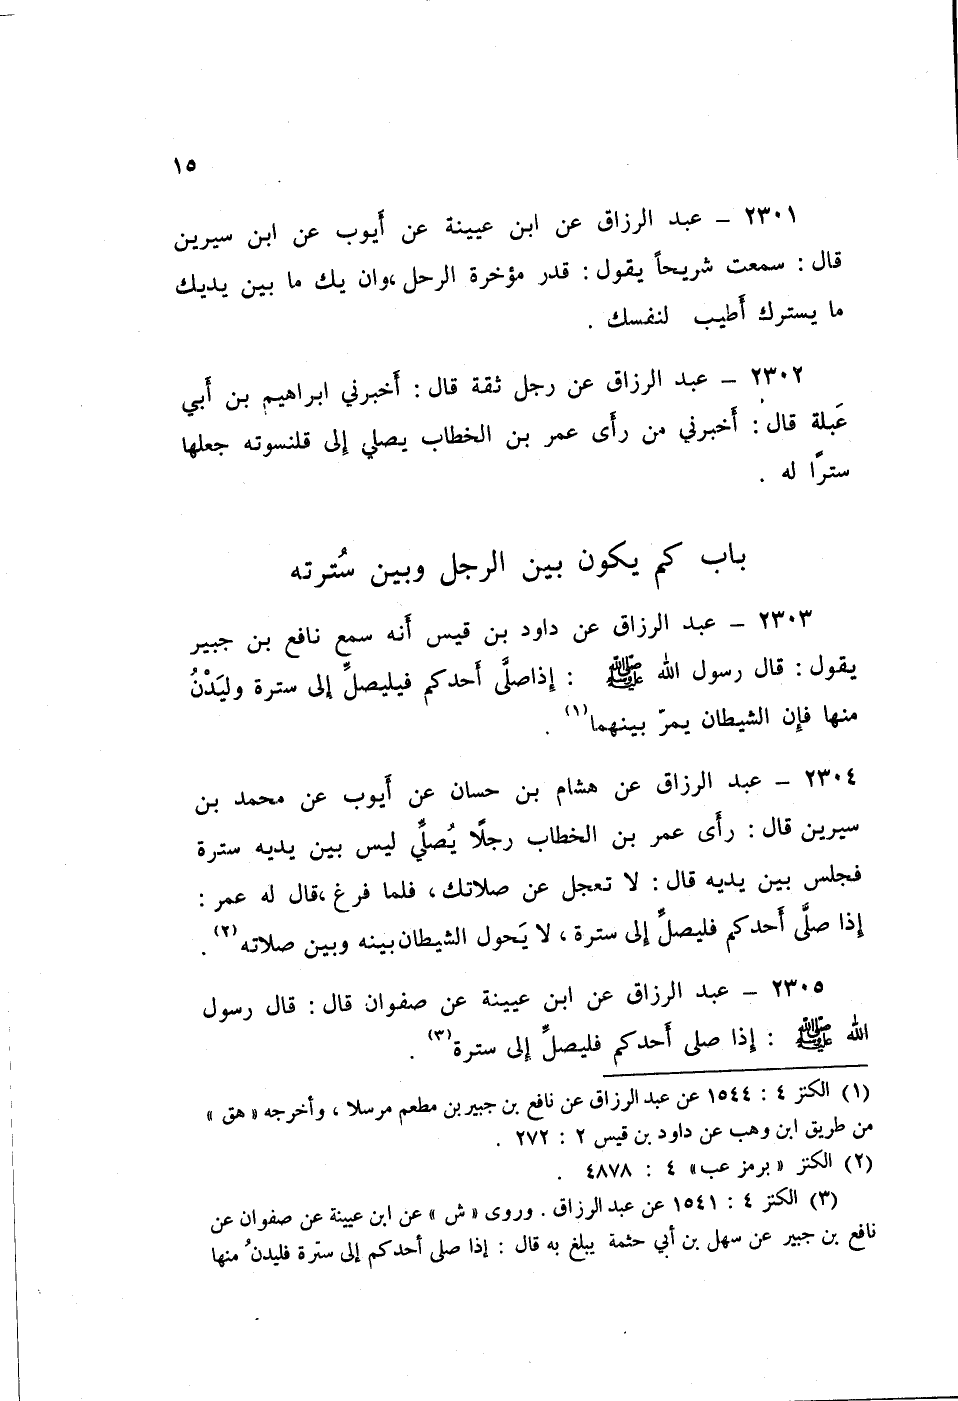 ١٥
٢٣٠١ ــ عبد الرزاق عن ابن عيينة عن أَيوب عن ابن سيرين
قال : سمعت شريحاً يقول : قدر مؤخرة الرحل ،وان يك ما بين يديك
ما يسترك أَطيب لنفسك .
٢٣٠٢ ــ عبد الرزاق عن رجل ثقة قال : أَخبرني ابراهيم بن أَبي
عَبلة قال : أَخبرني من رأَى عمر بن الخطاب يصلي إِلى قلنسوته جعلها
سترًا له .
باب كم يكون بين الرجل وبين سُترته
٢٣٠٣ ــ عبد الرزاق عن داود بن قيس أَنه سمع نافع بن جبير
يقول : قال رسول الله ﷺ : إِذاصلَّى أَحدكم فيليصلِّ إِلى سترة وليَدْنُ
منها فإِن الشيطان يمرّ بينهما(١) .
٢٣٠٤ ــ عبد الرزاق عن هشام بن حسان عن أَيوب عن محمد بن
سيرين قال : رأَى عمر بن الخطاب رجلًا يُصلِّي ليس بين يديه سترة
فجلس بين يديه قال : لا تعجل عن صلاتك ، فلما فرغ ،قال له عمر :
إِذا صلَّى أَحدكم فليصلِّ إِلى سترة ، لا يَحول الشيطان بينه وبين صلاته(٢) .
٢٣٠٥ ــ عبد الرزاق عن ابن عيينة عن صفوان قال : قال رسول
الله ﷺ : إِذا صلى أَحدكم فليصلِّ إِلى سترة(٣) .
(١) الكنز ٤ : ١٥٤٤ عن عبد الرزاق عن نافع بن جبير بن مطعم مرسلا ، وأخرجه « هق »
من طريق ابن وهب عن داود بن قيس ٢ : ٢٧٢ .
(٢) الكنز « برمز عب» ٤ : ٤٨٧٨ .
(٣) الكنز ٤ : ١٥٤١ عن عبد الرزاق . وروى « ش » عن ابن عيينة عن صفوان عن
نافع بن جبير عن سهل بن أبي حثمة يبلغ به قال : إذا صلى أحدكم إلى سترة فليدنُ منها